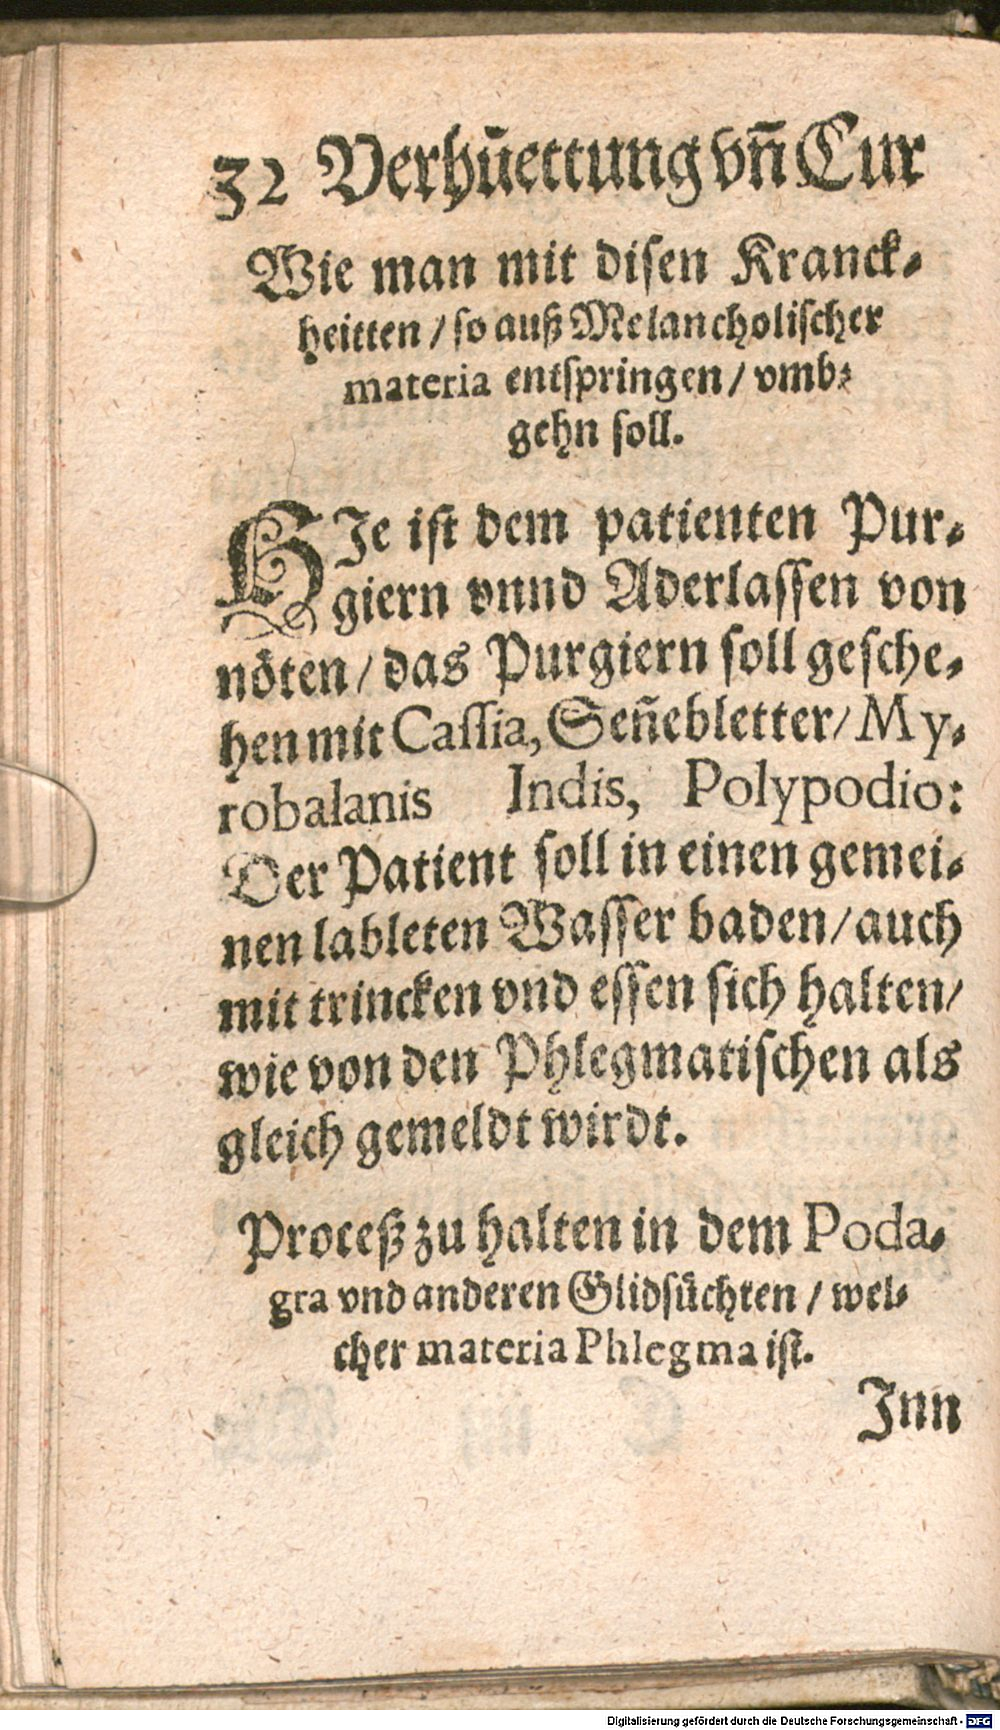 32 Verhuͤettung vñ Cur
Wie man mit disen Kranck⸗
heitten / so auß Melancholischer
materia entspringen / vmb⸗
gehn soll.
HIe ist dem patienten Pur⸗
giern vnnd Aderlassen von
nöten / das Purgiern soll gesche⸗
hen mit Cassia, Señebletter / My⸗
robalanis Indis, Polypodio:
Der Patient soll in einen gemei⸗
nen lableten Wasser baden / auch
mit trincken vnd essen sich halten /
wie von den Phlegmatischen als
gleich gemeldt wirdt.
Proceß zu halten in dem Poda⸗
gra vnd anderen Glidsüchten / wel⸗
cher materia Phlegma ist.
Inn
Digitalisierung gefördert durch die Deutsche Forschungsgemeinschaft - DFG